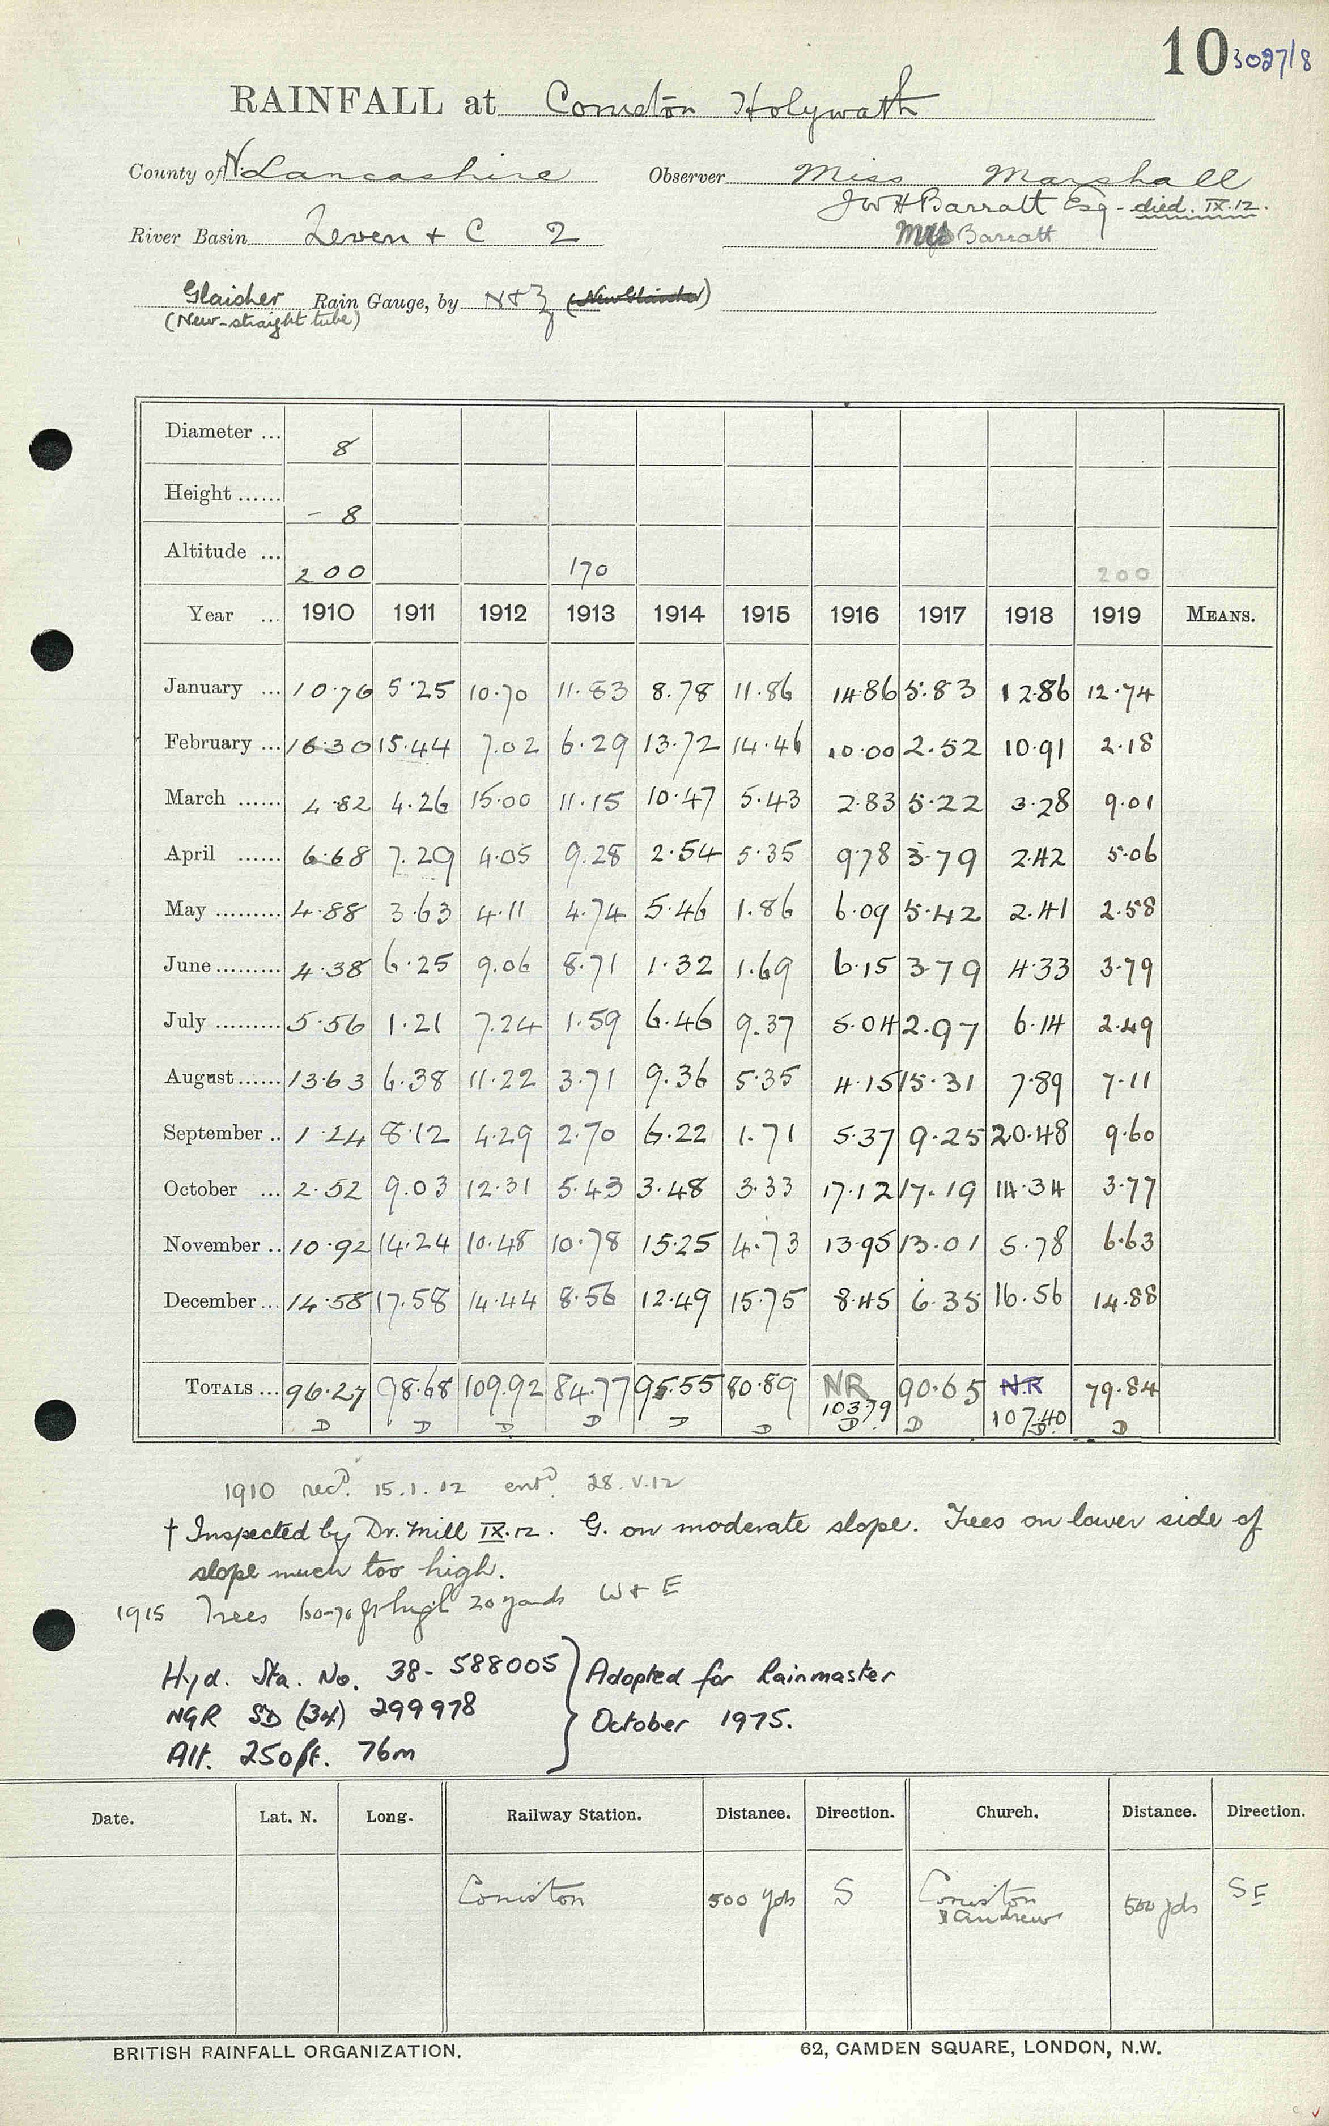 10 3027/8
RAINFALL at Coniston Holywath
County of N. Lancashire Observer Miss Marshall
JWH Barratt Esq - died IX.12.
River Basin Leven + C 2 Barratt
Glaisher Rain Gauge, by N+Z (New Glaisher)
(New-straight tube)
Diameter ... 8
Height ...... - 8
Altitude ... 200 170 200
Year ... 1910 1911 1912 1913 1914 1915 1916 1917 1918 1919 MEANS.
January ... 10.76 5.25 10.70 11.83 8.78 11.86 14.86 5.83 12.86 12.74
February ... 16.30 15.44 7.02 6.29 13.72 14.46 10.00 2.52 10.91 2.18
March ...... 4.82 4.26 15.00 11.15 10.47 5.43 2.83 5.22 3.28 9.01
April ...... 6.68 7.29 4.05 9.28 2.54 5.35 9.78 3.79 2.42 5.06
May ......... 4.88 3.63 4.11 4.74 5.46 1.86 6.09 5.42 2.41 2.58
June ......... 4.38 6.25 9.06 8.71 1.32 1.69 6.15 3.79 4.33 3.79
July ......... 5.56 1.21 7.24 1.59 6.46 9.37 5.04 2.97 6.14 2.49
August ...... 13.63 6.38 11.22 3.71 9.36 5.35 4.15 15.31 7.89 7.11
September .. 1.24 8.12 4.29 2.70 6.22 1.71 5.37 9.25 20.48 9.60
October ... 2.52 9.03 12.31 5.43 3.48 3.33 17.12 17.19 14.34 3.77
November .. 10.92 14.24 10.48 10.78 15.25 4.73 13.95 13.01 5.78 6.63
December ... 14.58 17.58 14.44 8.56 12.49 15.75 8.45 6.35 16.56 14.88
TOTALS ... 96.27 98.68 109.92 84.77 95.55 80.89 NR 90.65 N.R 79.84
103.79 107.40
D D D D D D D D D D
1910 recd. 15.1.12 entd. 28.V.12
† Inspected by Dr. Mill IX.12. G. on moderate slope. Trees on lower side of
slope much too high.
1915 Trees 60-70 ft high 20 yards W + E
Hyd. Sta. No. 38- 588005 } Adopted for Rainmaster
NGR SD (34) 299978 October 1975.
Alt. 250ft. 76m
Date. Lat. N. Long. Railway Station. Distance. Direction. Church. Distance. Direction.
Coniston 500 yds S Coniston 500 yds SE
S Andrews
BRITISH RAINFALL ORGANIZATION. 62, CAMDEN SQUARE, LONDON, N.W.